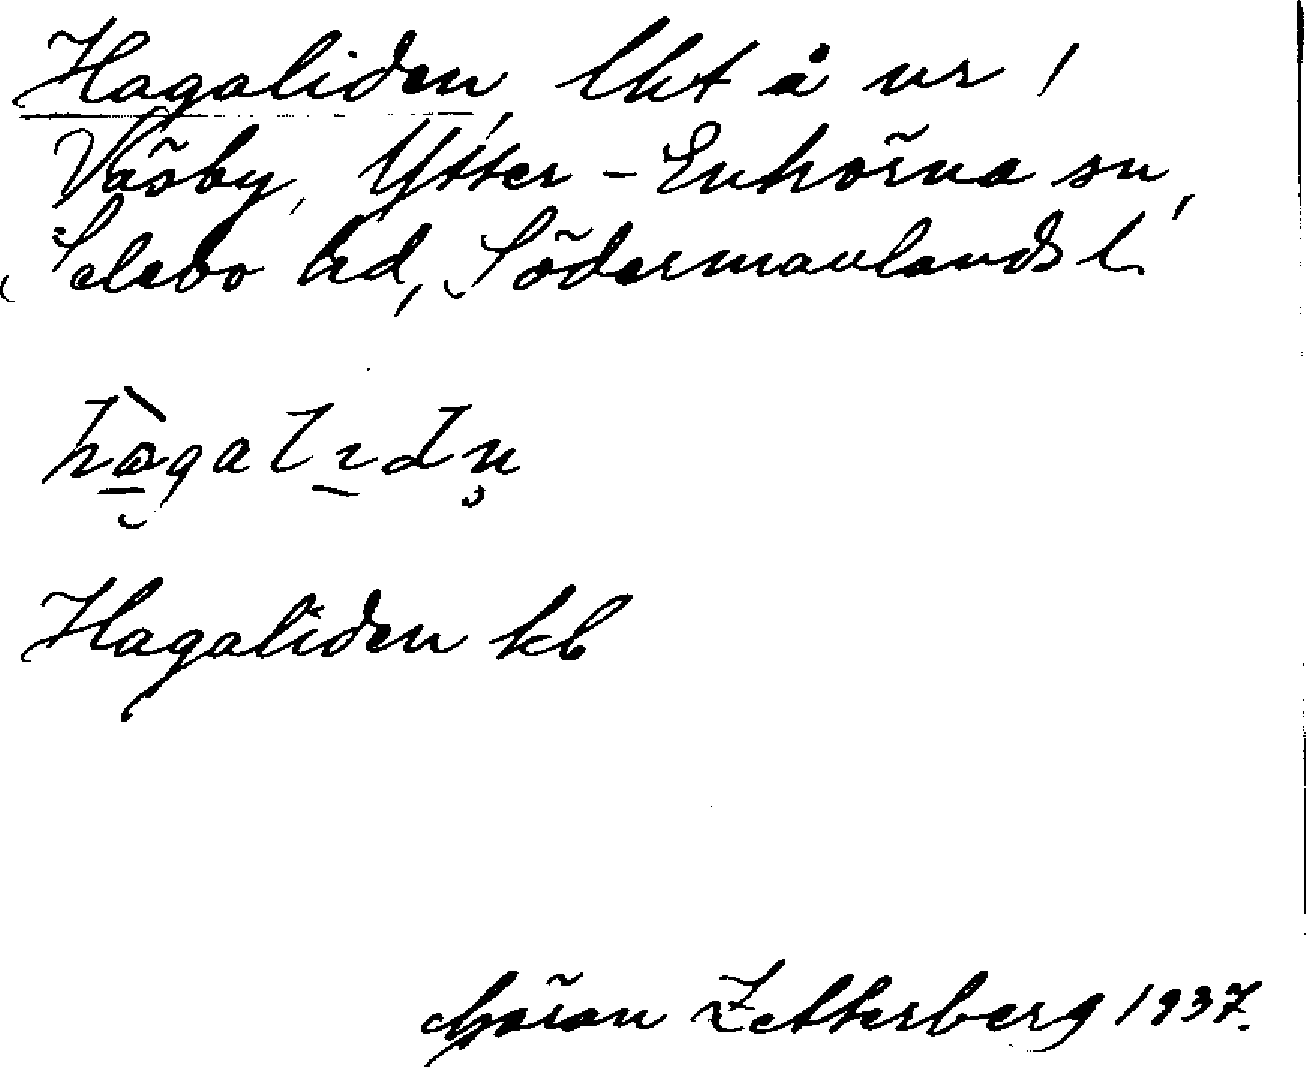 Hagaliden, lht å ur i
Väsby, Ytter-Enhörna sn,
Selebo hd, Södermanlands l.
hàgalıdn̥
Hagaliden kb
Göran Zetterberg 1937.